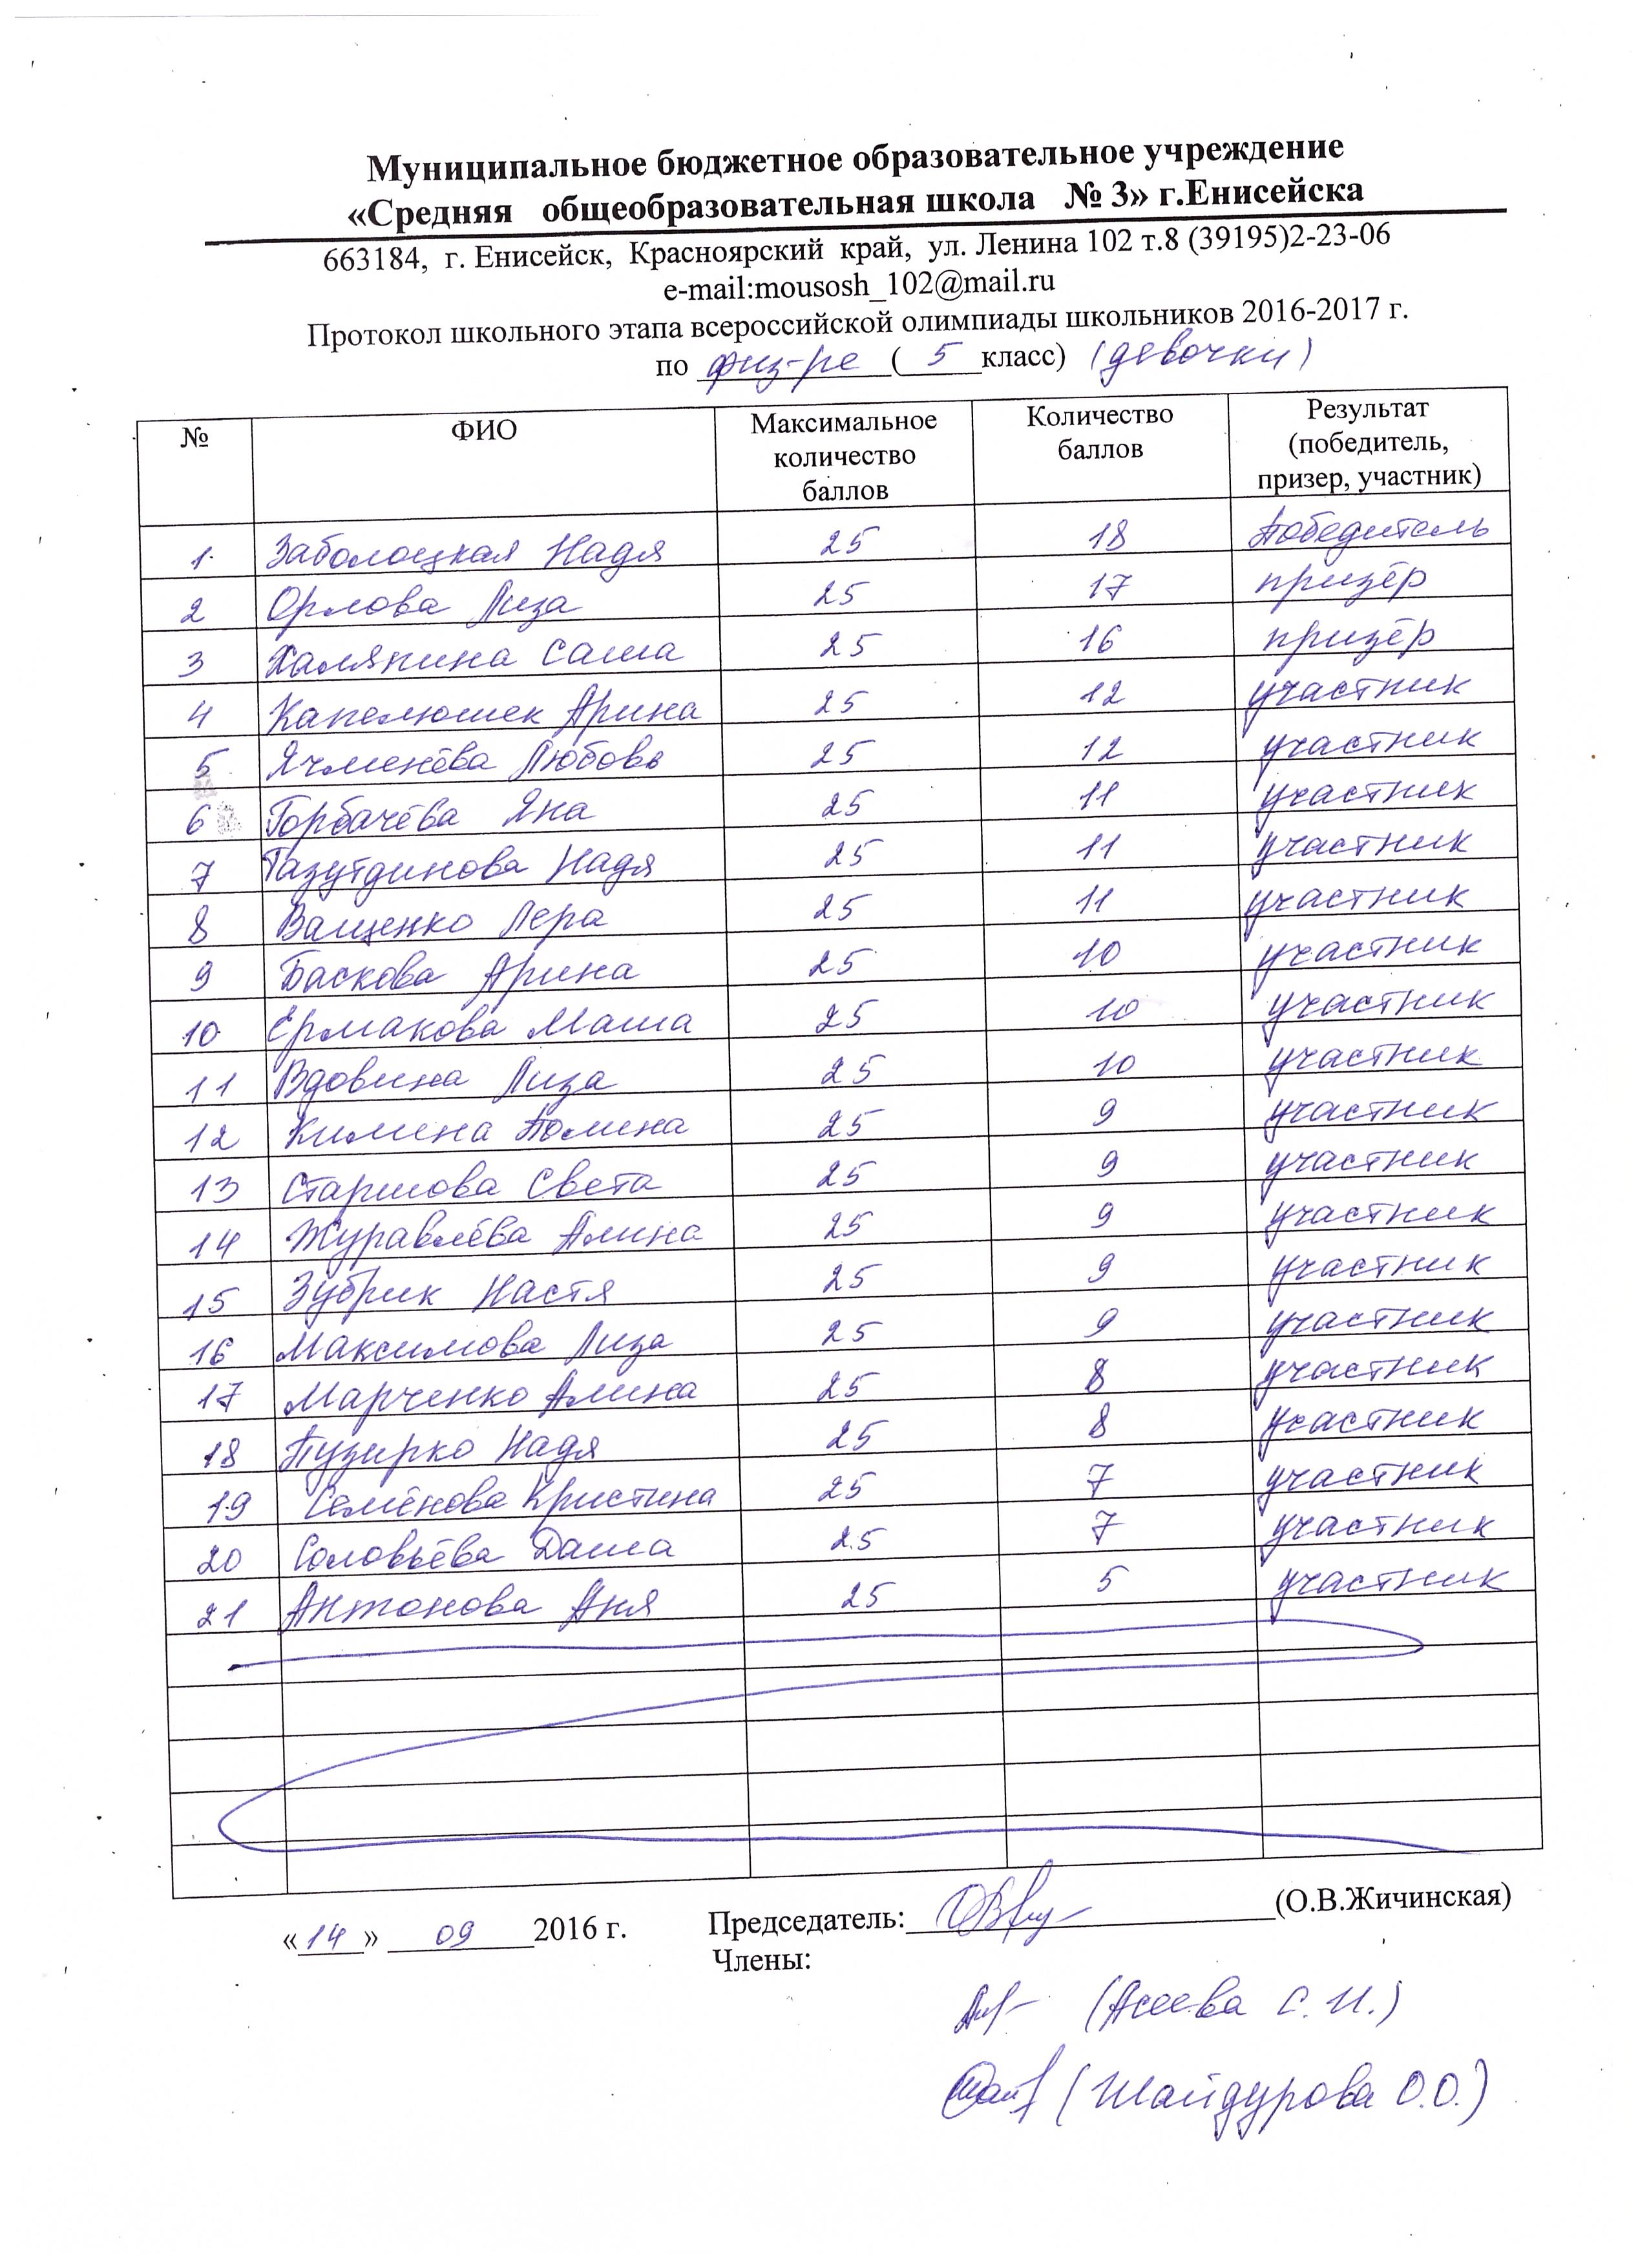 Муниципальное бюджетное образовательное учреждение
«Средняя общеобразовательная школа № 3» г.Енисейска
663184, г. Енисейск, Красноярский край, ул. Ленина 102 т.8 (39195)2-23-06
e-mail:mousosh_102@mail.ru
Протокол школьного этапа всероссийской олимпиады школьников 2016-2017 г.
по физ-ре ( 5 класс) (девочки)
№ ФИО Максимальное количество баллов Количество баллов Результат (победитель, призер, участник)
1. Заболоцкая Надя 25 18 Победитель
2 Орлова Лиза 25 17 призёр
3 Халяпина Саша 25 16 призёр
4 Капелюшек Арина 25 12 участник
5 Ячменёва Любовь 25 12 участник
6 Горбачёва Яна 25 11 участник
7 Газутдинова Надя 25 11 участник
8 Ващенко Лера 25 11 участник
9 Баскова Арина 25 10 участник
10 Ермакова Маша 25 10 участник
11 Вдовина Лиза 25 10 участник
12 Килина Полина 25 9 участник
13 Старшова Света 25 9 участник
14 Журавлёва Алина 25 9 участник
15 Зубрик Настя 25 9 участник
16 Максимова Лиза 25 9 участник
17 Марченко Алина 25 8 участник
18 Пузирко Надя 25 8 участник
19 Семёнова Кристина 25 7 участник
20 Соловьёва Даша 25 7 участник
21 Антонова Аня 25 5 участник
«14» 09 2016 г. Председатель: (О.В.Жичинская)
Члены:
(Асеева С.И.)
(Шайдурова О.О.)